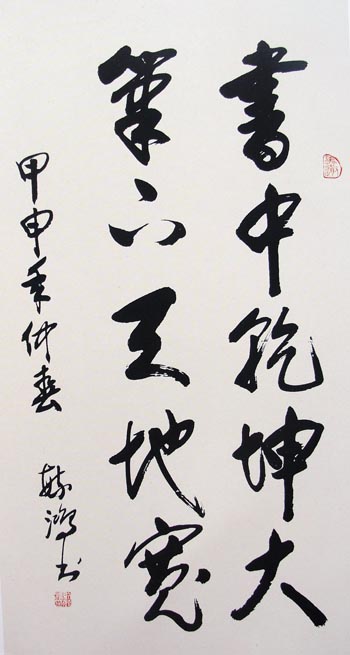 書中乾坤大
筆下天地寬
甲申年仲春 鸿书